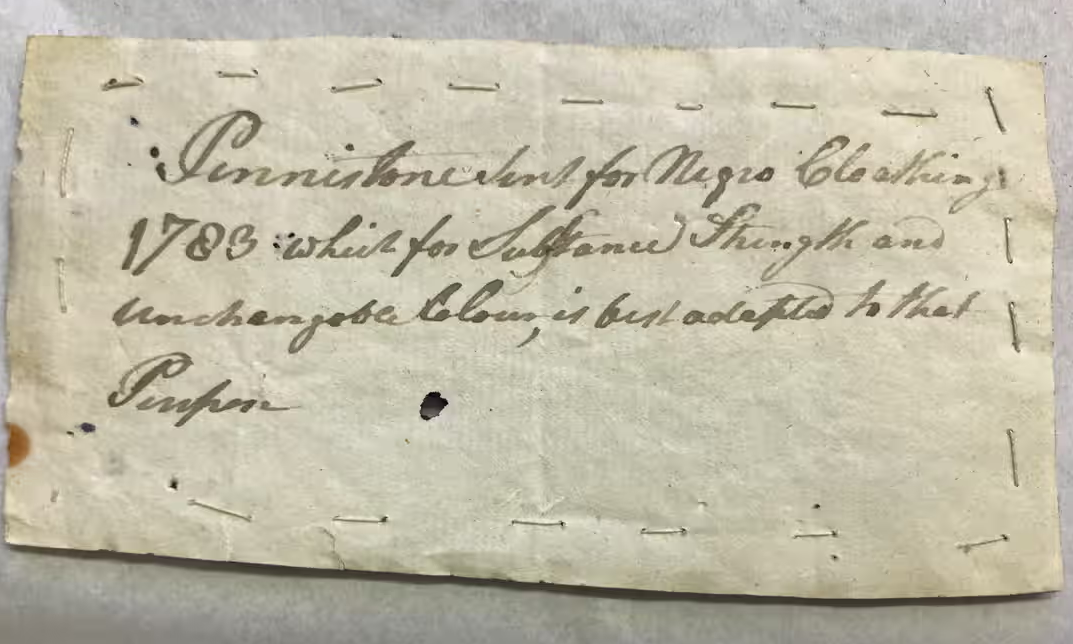 Pennistone sent for Negro Cloathing
1783 which for Substance Strength and
unchangable Colour, is best adapted to that
Purpose